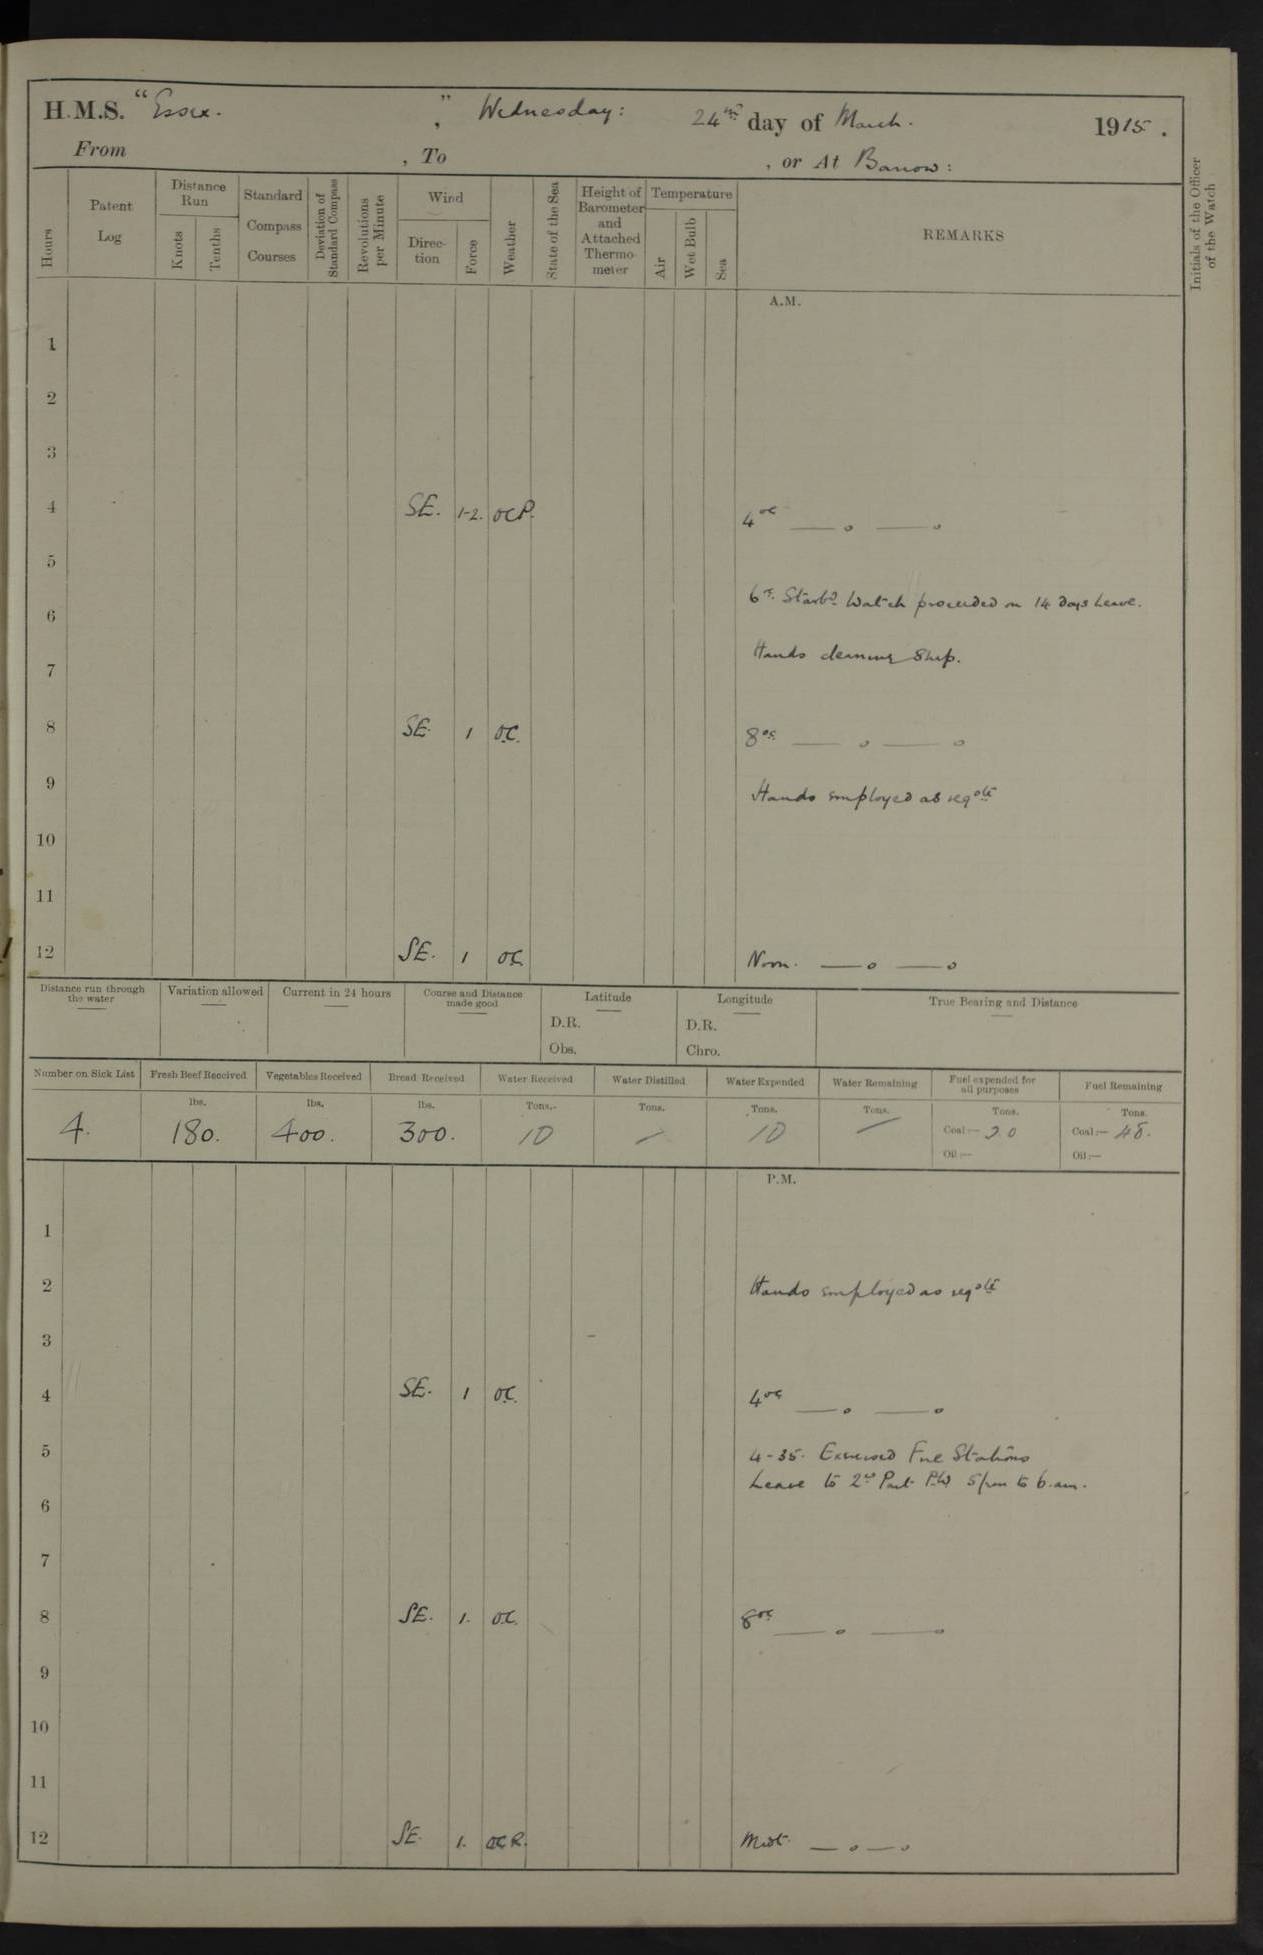 H.M.S. "Essex. ", Wednesday: 24nd day of March. 1915.
From , To , or At Barrow:
Hours
Patent Log
Distance Run
Knots
Tenths
Standard Compass Courses
Deviation of Standard Compass
Revolutions per Minute
Wind
Direction
Force
Weather
State of the Sea
Height of Barometer and Attached Thermometer
Temperature
Air
Wet Bulb
Sea
REMARKS
Initials of the Officer of the Watch
A.M.
1
2
3
4 SE. 1-2. OCP. 4oc — o — o
5
6 Starbd Watch proceeded on 14 days Leave.
6
Hands cleaning Ship.
7
8 SE. 1 O.C. 8oc — o — o
9 Hands employed as reqte
10
11
12 SE. 1 OC Noon. — o — o
Distance run through the water
Variation allowed
Current in 24 hours
Course and Distance made good
Latitude
D.R.
Obs.
Longitude
D.R.
Chro.
True Bearing and Distance
Number on Sick List Fresh Beef Received Vegetables Received Bread Received Water Received Water Distilled Water Expended Water Remaining Fuel expended for all purposes Fuel Remaining
lbs. lbs. lbs. Tons. Tons. Tons. Tons. Tons. Tons.
4. 180. 400. 300. 10 — 10 — Coal:— 20 Coal:— 48.
Oil:— Oil:—
P.M.
1
2 Hands employed as reqte
3
4 SE. 1 O.C. 4oc — o — o
5 4-35. Exercised Fire Stations
Leave to 2nd Part P.W 5pm to 6.am.
6
7
8 SE. 1. O.C. 8oc — o — o
9
10
11
12 SE. 1. OCR. Midt. — o — o